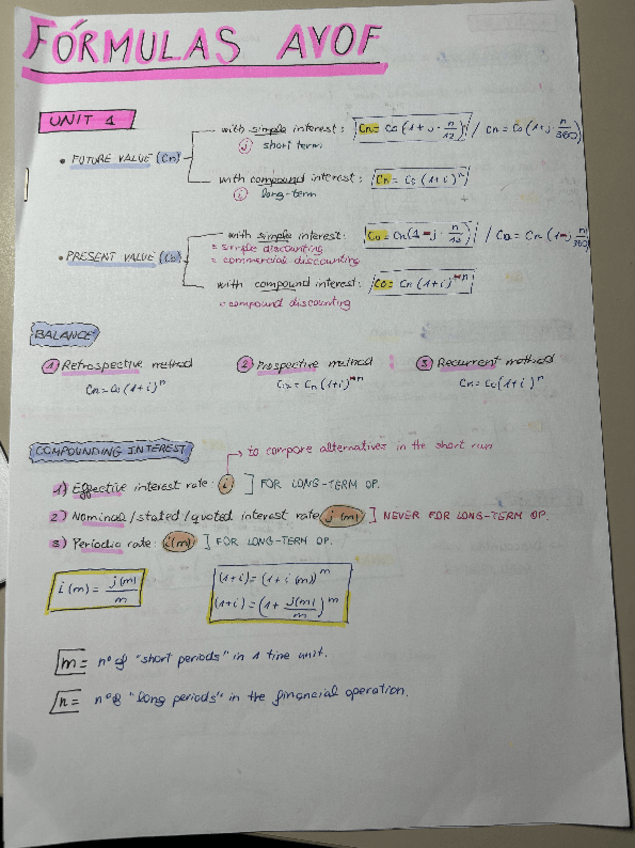 FÓRMULAS AVOF
UNIT 1
• FUTURE VALUE (Cn)
with simple interest: Cn = Co (1 + j · n/12) / Cn = Co (1 + j · n/360)
j short term
with compound interest: Cn = Co (1+i)^n
i long-term
• PRESENT VALUE (Co)
with simple interest: Co = Cn (1 - j · n/12) / Co = Cn (1 - j n/360)
= simple discounting
= commercial discounting
with compound interest: Co = Cn (1+i)^-n
= compound discounting
BALANCE
1) Retrospective method 2) Prospective method 3) Recurrent method
Cn = Co (1+i)^n Cn (1+i) Cn = Co (1+i)^n
COMPOUNDING INTEREST
→ to compare alternatives in the short run
1) Effective interest rate: i ] FOR LONG-TERM OP.
2) Nominal/stated/quoted interest rate j(m) ] NEVER FOR LONG-TERM OP.
3) Periodic rate: i(m) ] FOR LONG-TERM OP.
i(m) = j(m)/m
(1+i) = (1+i(m))^m
(1+i) = (1 + j(m)/m)^m
m = nº of "short periods" in 1 time unit.
n = nº of "long periods" in the financial operation.